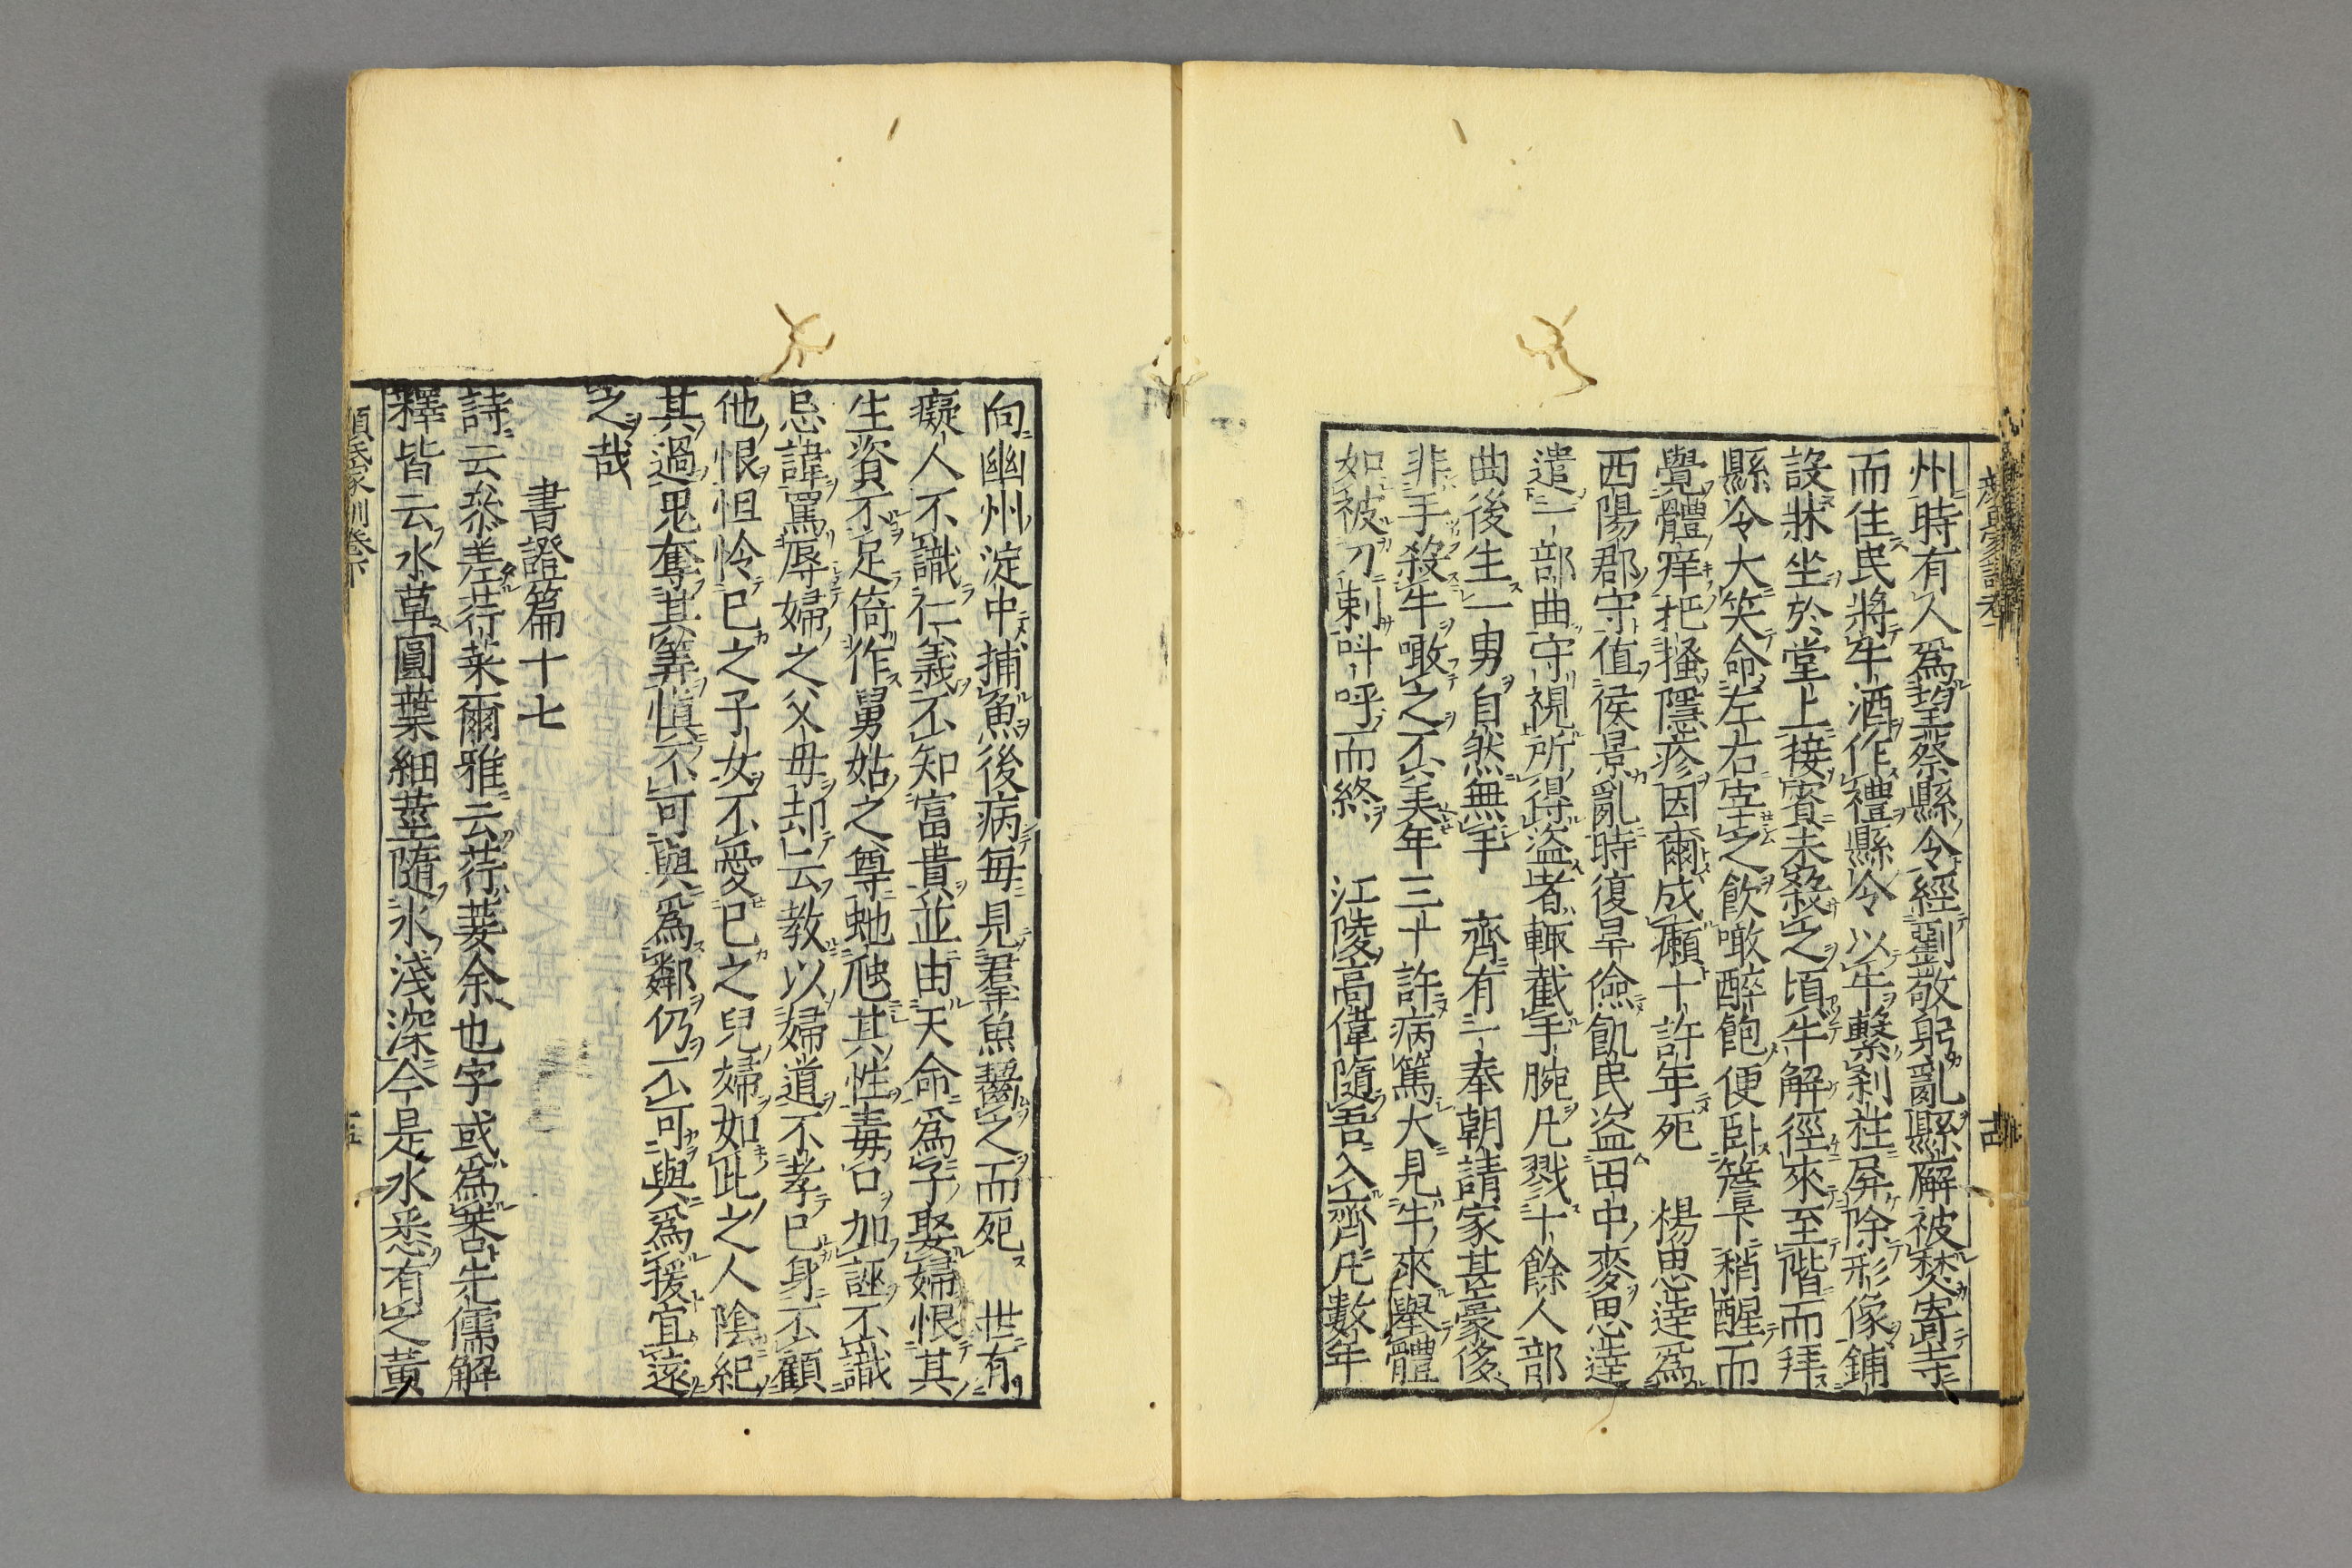 州時有人爲望蔡縣令經劉敬躬亂縣廨被焚寄寺
而住民將牛酒作禮縣令以牛繫刹柱屏除形像鋪
設牀坐於堂上接賓未殺之頃牛解徑來至階而拜
縣令大笑命左右宰之飲噉醉飽便卧簷下稍醒而
覺體痒把搔隱疹因爾成癩十許年死　楊思達爲
西陽郡守值侯景亂時復旱儉飢民盜田中麥思達
遣一部曲守視所得盜者輒截手腕凡戮十餘人部
曲後生一男自然無手　齊有一奉朝請家甚豪侈
非手殺牛噉之不美年三十許病篤大見牛來舉體
如被刀刺叫呼而終　江陵高偉隨吾入齊凡數年
向幽州淀中捕魚後病每見羣魚齧之而死　世有
癡人不識仁義不知富貴並由天命爲子娶婦恨其
生資不足倚作舅姑之尊虵虺其性毒口加誣不識
忌諱罵辱婦之父母却云教以婦道不孝己身不顧
他恨但怜己之子女不愛己之兒婦如此之人陰紀
其過鬼奪其筭慎不可與爲鄰仍不可與爲援宜遠
之哉
書證篇十七
詩云參差荇菜爾雅云荇菨余也字或爲莕先儒解
釋皆云水草圓葉細莖隨水淺深今是水悉有之黃
顏氏家訓卷下